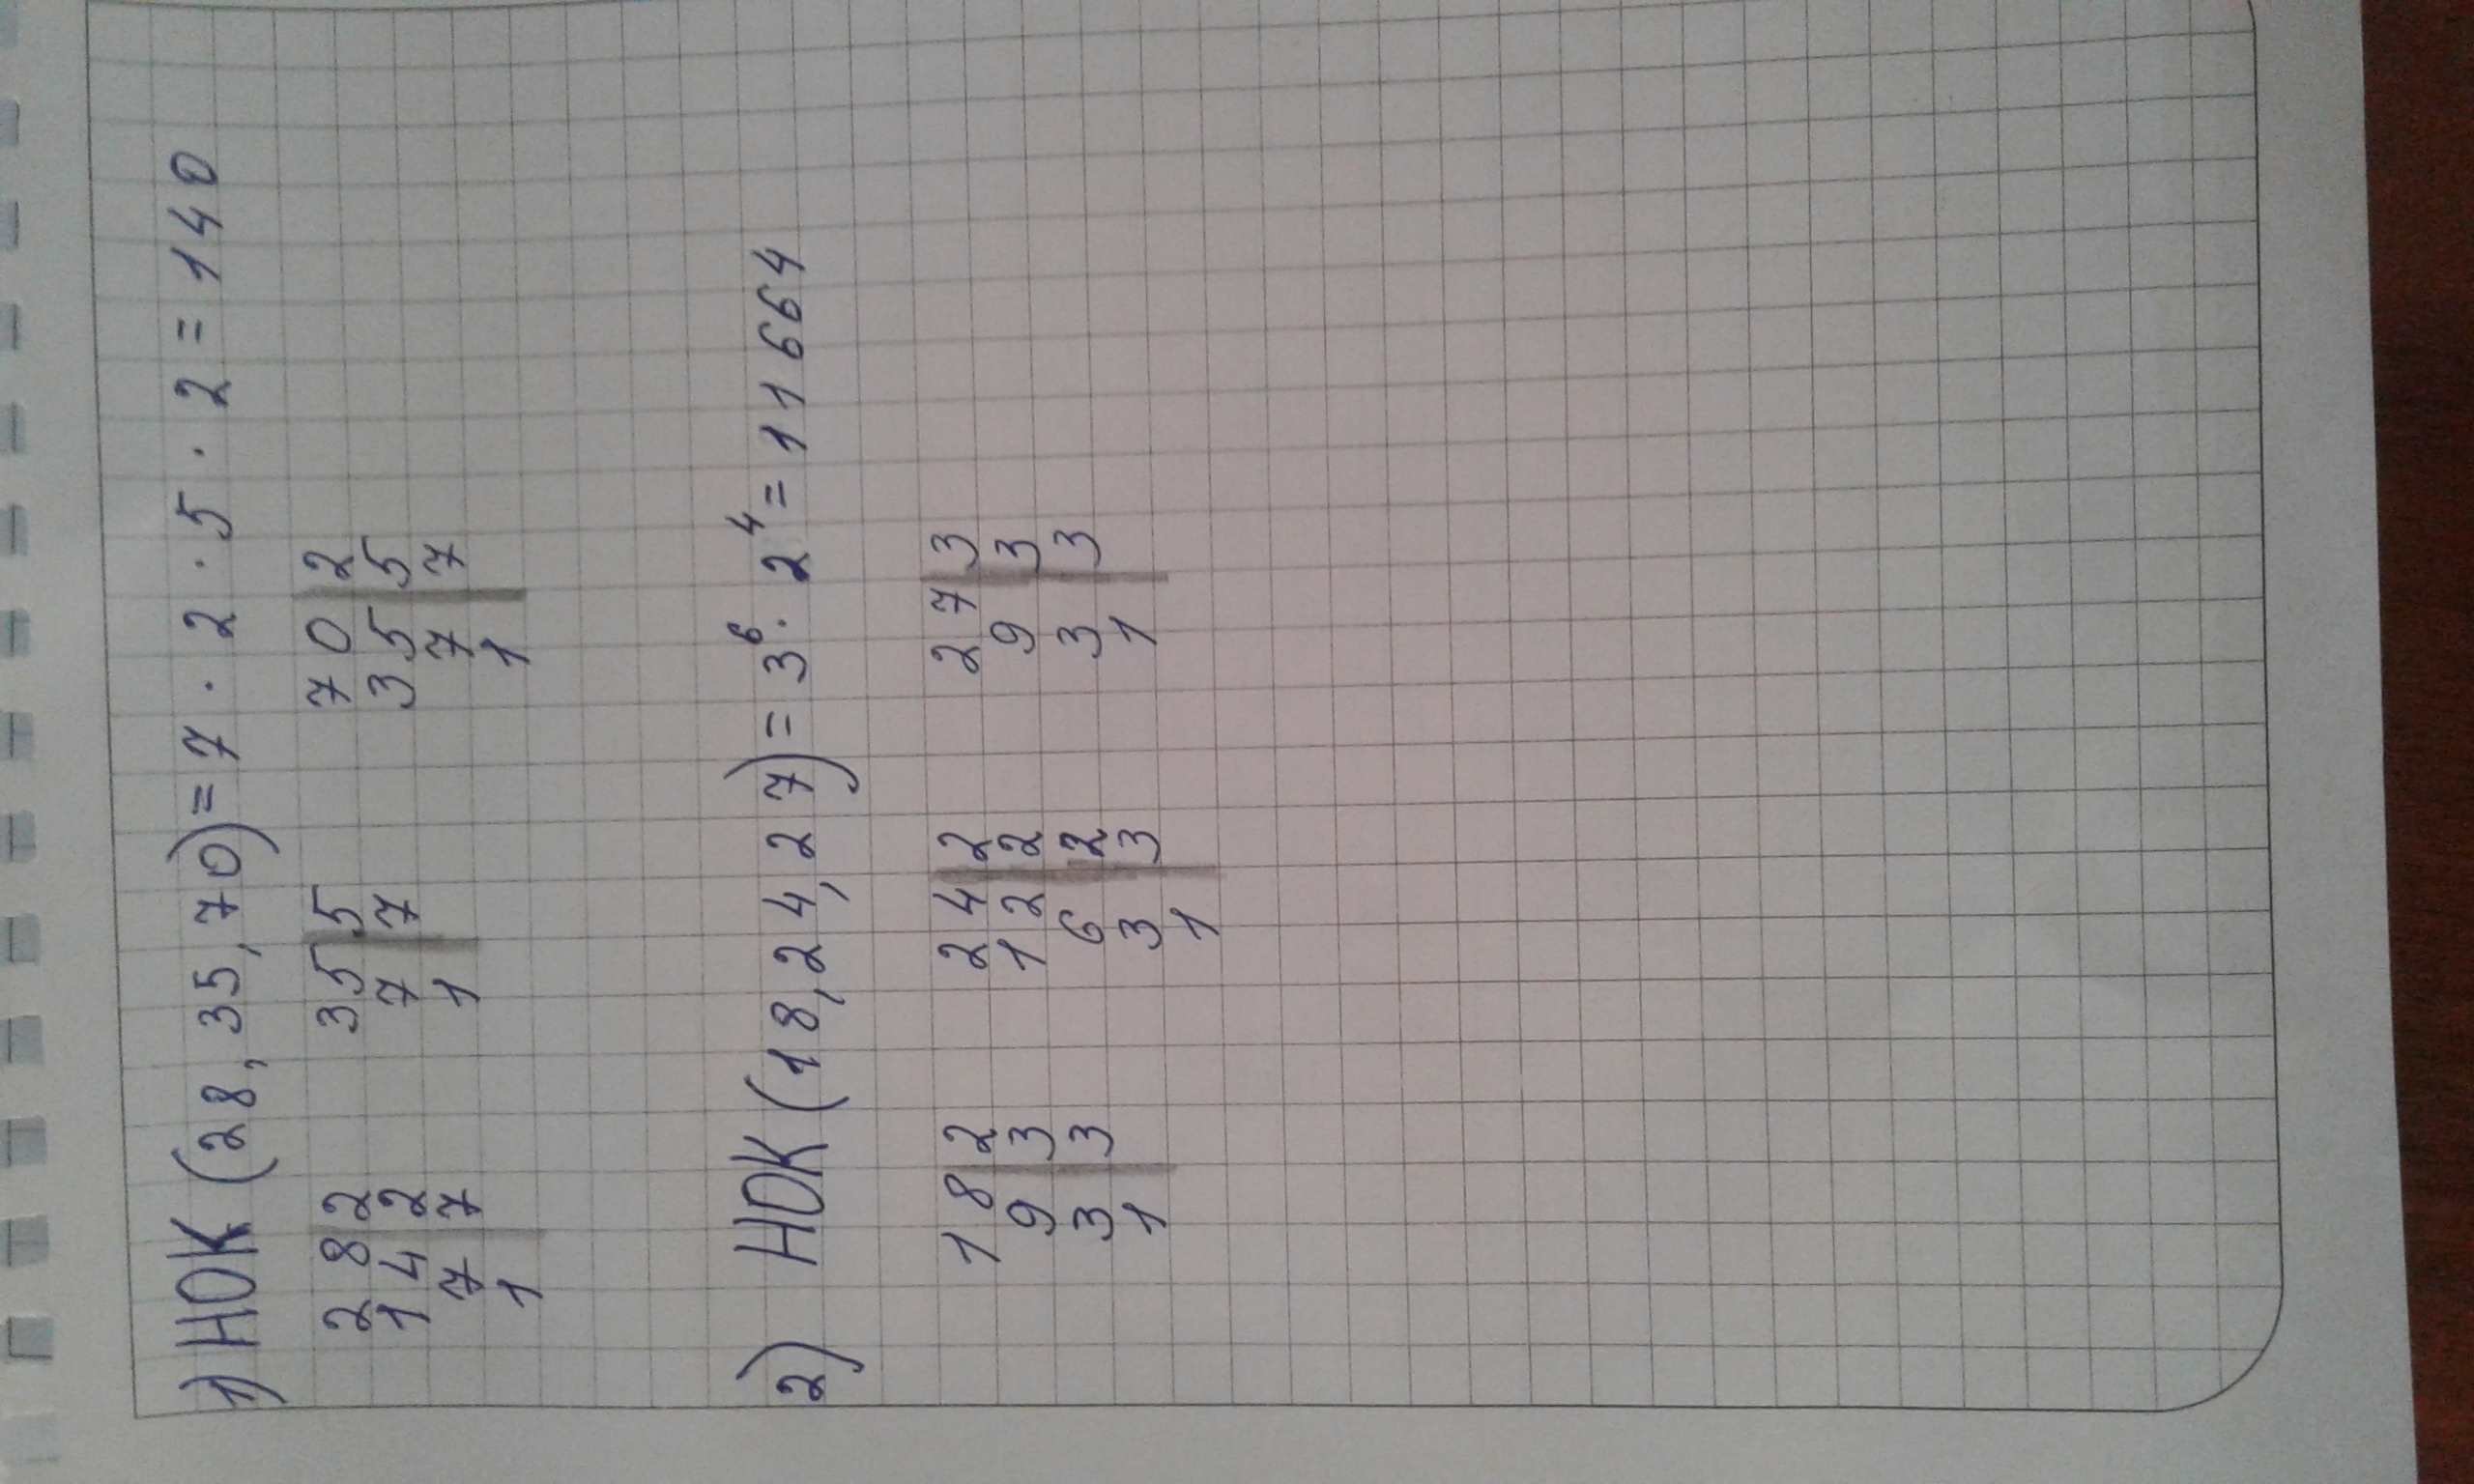 1) НОК (28, 35, 70) = 7 · 2 · 5 · 2 = 140
28 2 35 5 70 2
14 2 7 7 35 5
7 7 1 7 7
1 1
2) НОК (18, 24, 27) = 3⁶ · 2⁴ = 11664
18 2 24 2 27 3
9 3 12 2 9 3
3 3 6 2 3 3
1 3 3 1
1